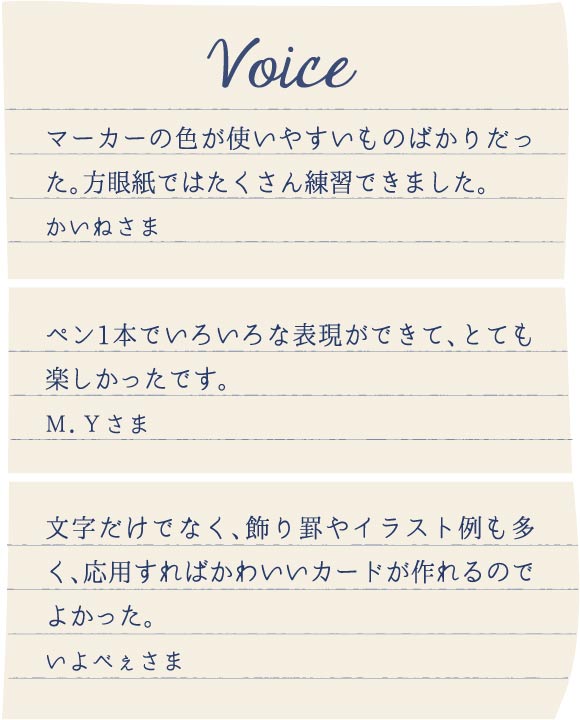 Voice
マーカーの色が使いやすいものばかりだっ
た。方眼紙ではたくさん練習できました。
かいねさま
ペン1本でいろいろな表現ができて、とても
楽しかったです。
M．Yさま
文字だけでなく、飾り罫やイラスト例も多
く、応用すればかわいいカードが作れるので
よかった。
いよべぇさま